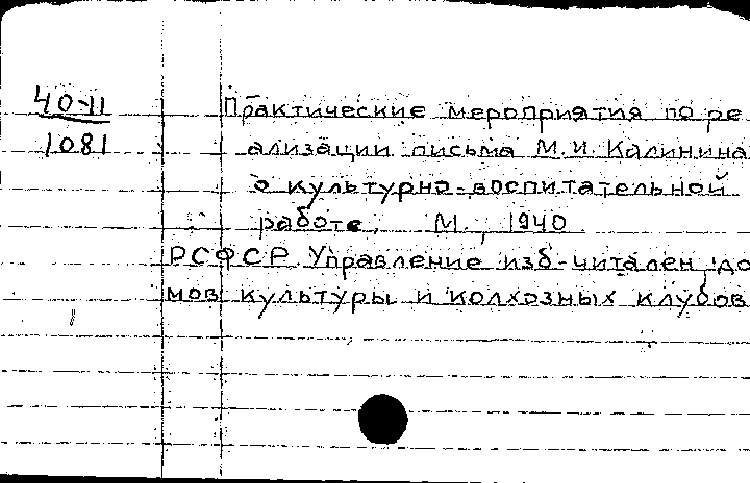 40-11
1081
Практические мероприятия по ре
ализации письма М.И. Калинина
о культурно-воспитательной
работе, М., 1940
РСФСР. Управление изб-читален, до
мов культуры и колхозных клубов